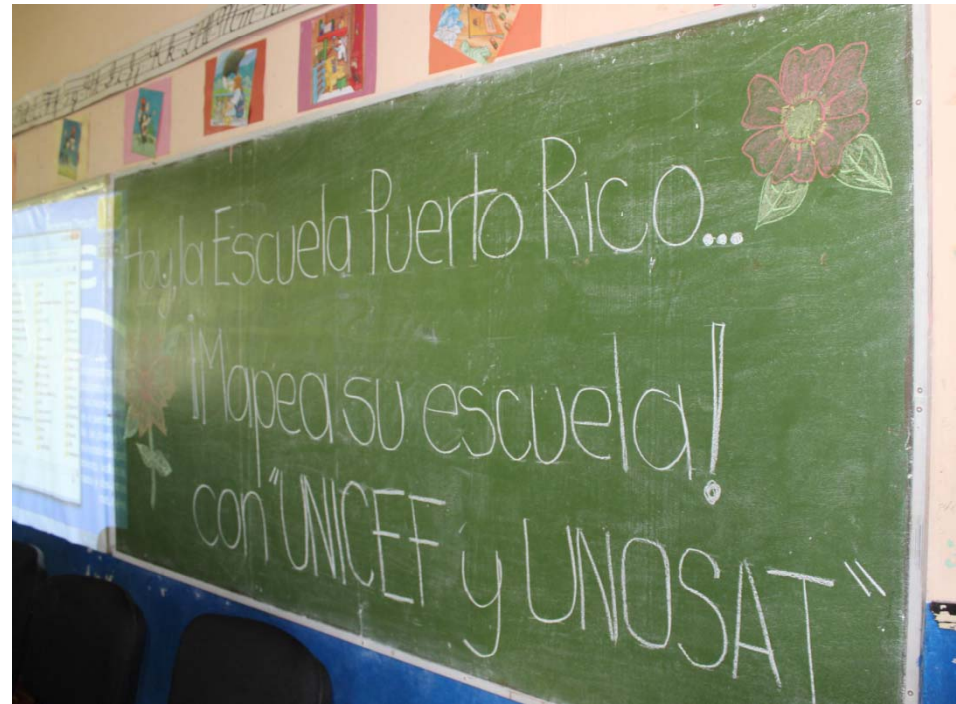 Hoy, la Escuela Puerto Rico...
¡Mapea su escuela!
con "UNICEF y UNOSAT"